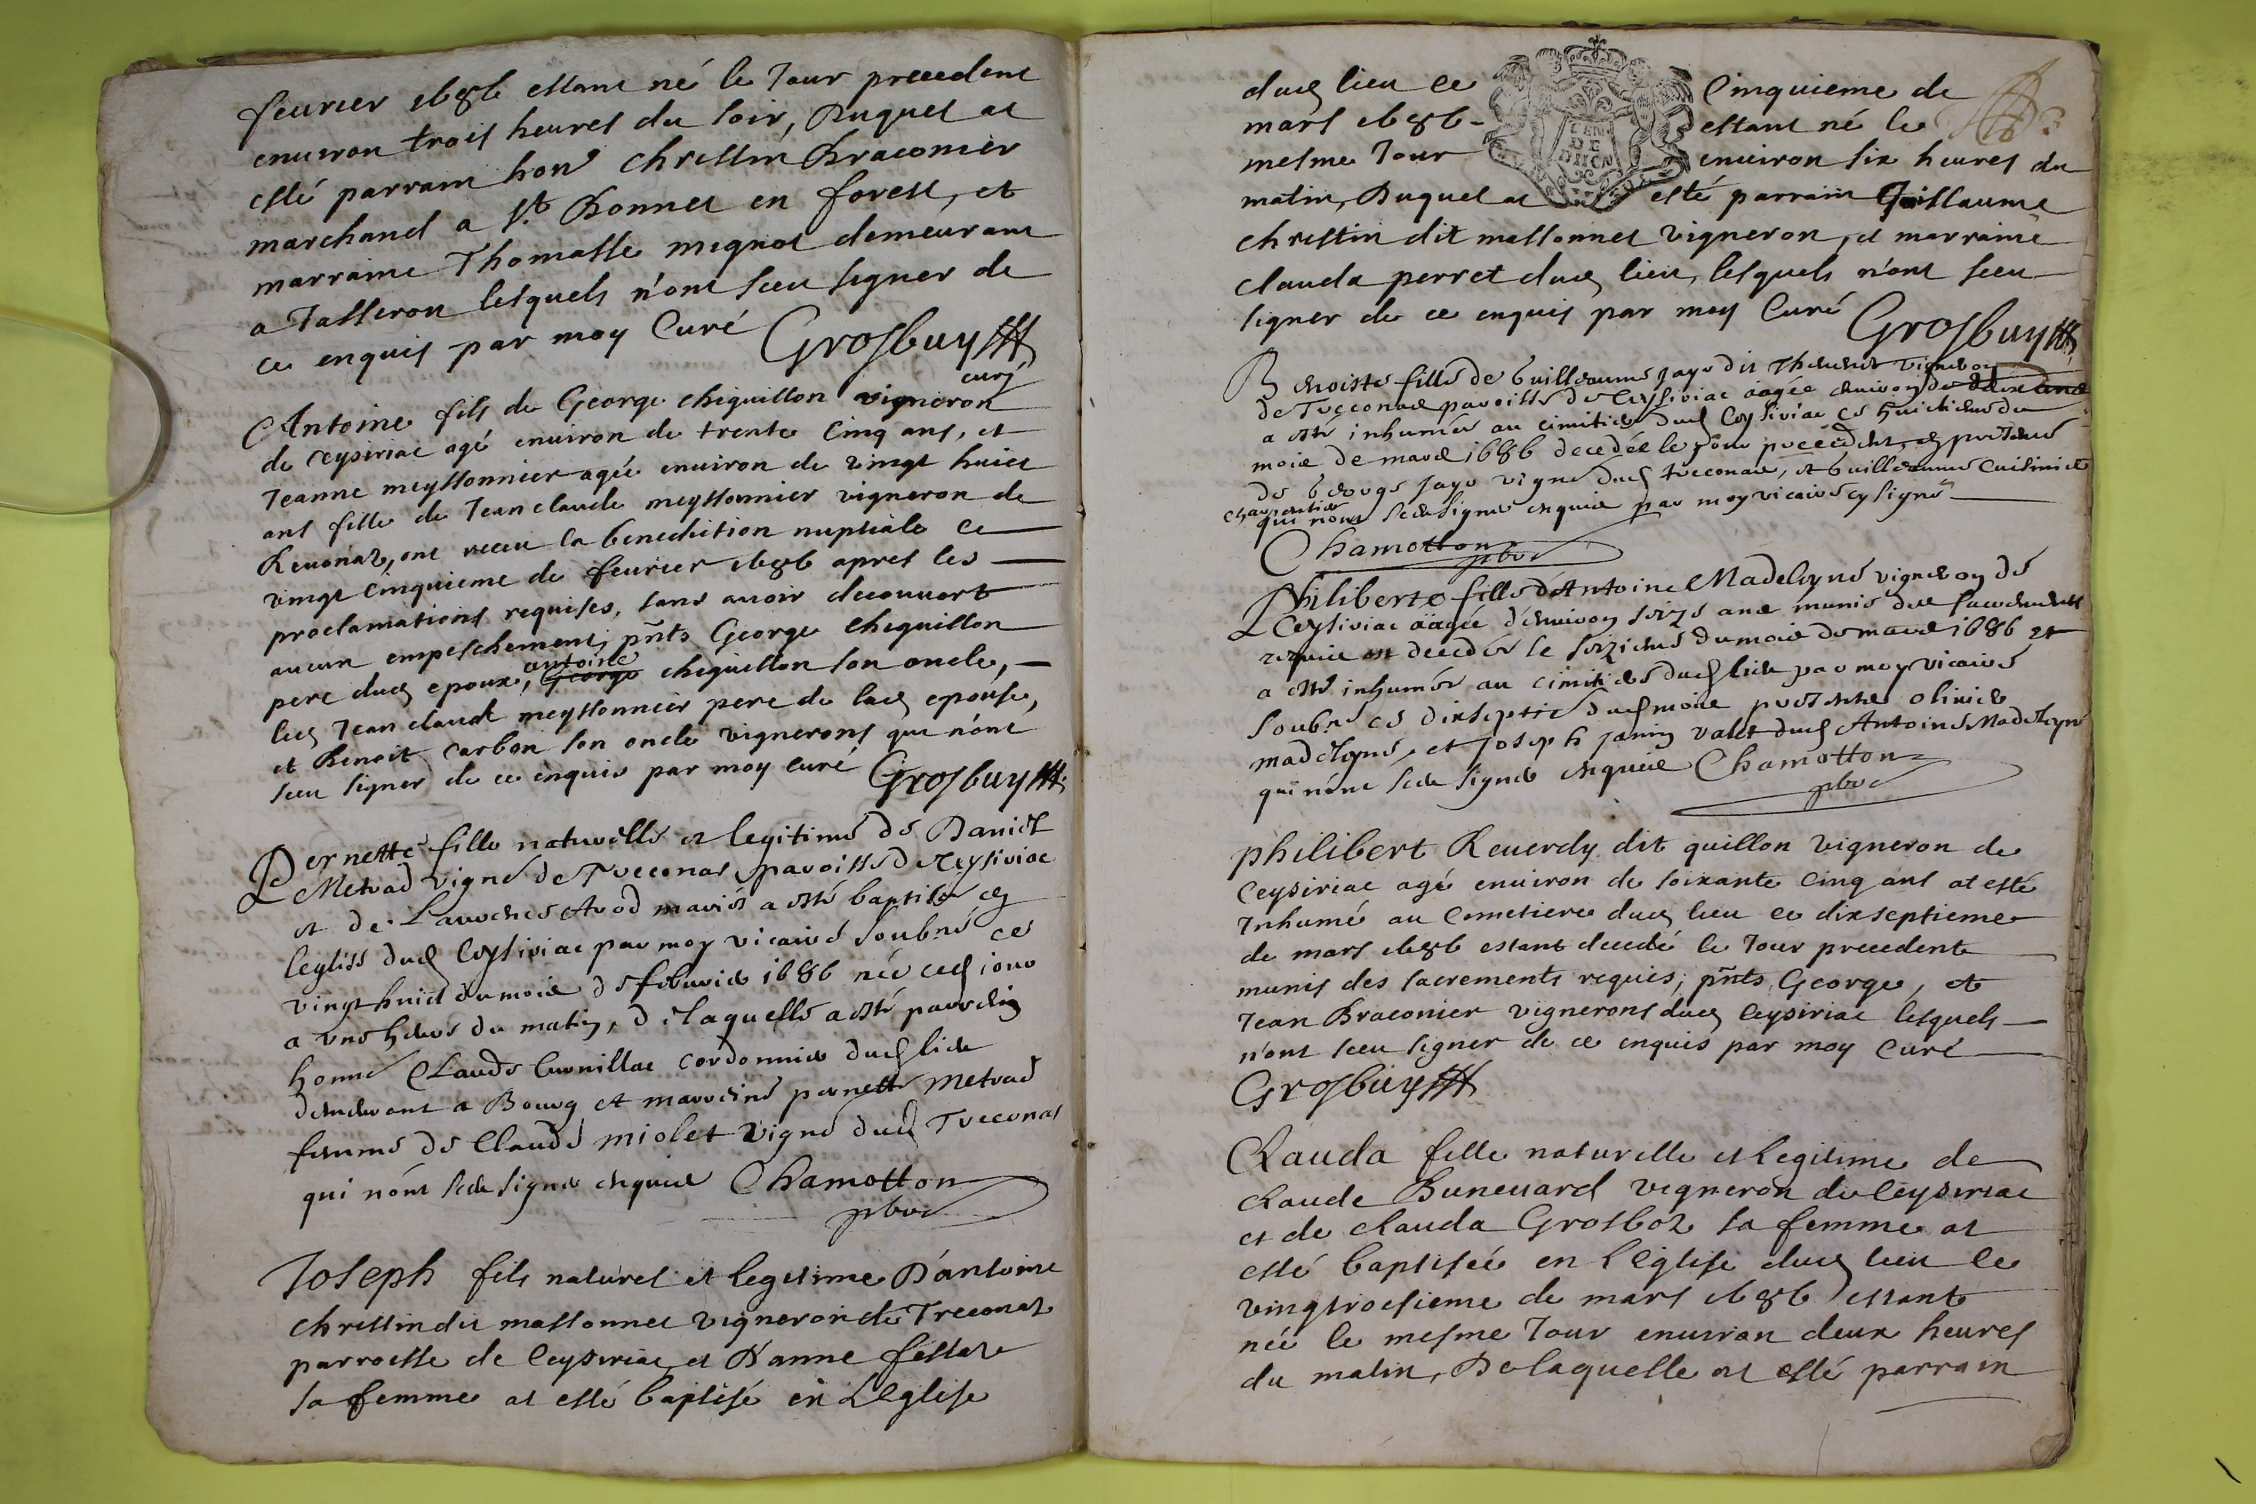 feurier 1686 estant né le Jour precedent
enuiron trois heures du soir, Duquel at
esté parrain hon^e Christin Braconier
marchand a S^t Bonnet en forest, et
marraine Thomasse mignot demeurant
a Jasseron lesquels n'ont sceu signer de
ce enquis par moy Curé Grosbuy
curé
Antoine fils de George chiquillon vigneron
de ceysiriac agé enuiron de trente Cinq ans, et
Jeanne meyssonnier agée enuiron de vingt huict
ans fille de Jean claude meyssonnier vigneron de
Reuonaz, ont receu la benediction nuptiale ce
vingt Cinquieme de feurier 1686 apres les
proclamations requises, sans auoir decouuert
aucun empeschement; pñts George Chiquillon
antoine
pere dud epoux, George chiquillon son oncle,
led Jean claude meyssonnier pere de lad epouse,
et Benoit Carbon son oncle vignerons qui n'ont
sceu signer de ce enquis par moy curé Grosbuy
Pernette fille naturelle et legitime de Daniel
Metrad vigne^ de Treconas paroisse de Ceysiriac
et de Laurence Arod mariés a esté baptisée en
leglise dud Ceysiriac par moy vicaire soubné ce
vingt huict du mois de febvrier 1686 née ced jour
a une heure du matin, de laquelle a esté parrein
honne Claude Curnillac cordonnier dud lieu
demeurant a Bourg et marreine pernette Metrad
femme de Claude miolet vigne^ dud Treconas
qui nónt sceu signer enquis Chamotton
pbre
Joseph fils naturel et legitime D'antoine
christin dit massonnet vigneron de Treconas
parroisse de Ceysiriac, et D'anne fillat
sa femme at esté baptisé en L'Eglise
dud lieu ce Cinquieme de
mars 1686 - estant né le
mesme Jour enuiron six heures du
matin, Duquel at esté parrain Guillaume
christin dit massonnet vigneron, et marraine
clauda perret dud lieu, lesquels n'ont sceu
signer de ce enquis par moy Curé Grosbuy
Benoiste fille de Guilleaume jayr dit Theuenet vigneron
de Treconas paroisse de Ceysiriac aagée enuiron de deux ans
a esté inhumée au cimitiere dud Ceysiriac ce huictieme du
mois de mars 1686 decedée le jour precedent en presence
de George jayr vigne^ dud treconas, et Guilleaume Cuisinier
charpentier
qui n'ont sceu signer enquis par moy vicaire cy signé
Chamotton
pbre
Philiberte fille d'Antoine Madeleyne vigneron de
Ceysiriac aagée d'enuiron seize ans munie des sacrements
requis est decedée le seizieme du mois de mars 1686 et
a esté inhumée au cimitiere dud lieu par moy vicaire
soubné ce dixseptie dud mois presents oliuier
madeleyne, et Joseph janin valet dud Antoine Madeleyne
qui nónt sceu signer enquis Chamotton
pbre
philibert Reuerdy dit quillon vigneron de
Ceysiriac agé enuiron de soixante Cinq ans at esté
Inhumé au Cemetiere dud lieu ce dixseptieme
de mars 1686 estant decedé le Jour precedent
munis des sacrements requis; pñts George, et
Jean Braconier vignerons dud Ceysiriac lesquels
n'ont sceu signer de ce enquis par moy Curé
Grosbuy
Clauda fille naturelle et legitime de
claude Buneuard vigneron de Ceysiriac
et de clauda Grosboz sa femme at
esté baptisée en L'Eglise dud lieu le
vingtroisieme de mars 1686 estant
née le mesme Jour enuiron deux heures
du matin, De laquelle at esté parrain